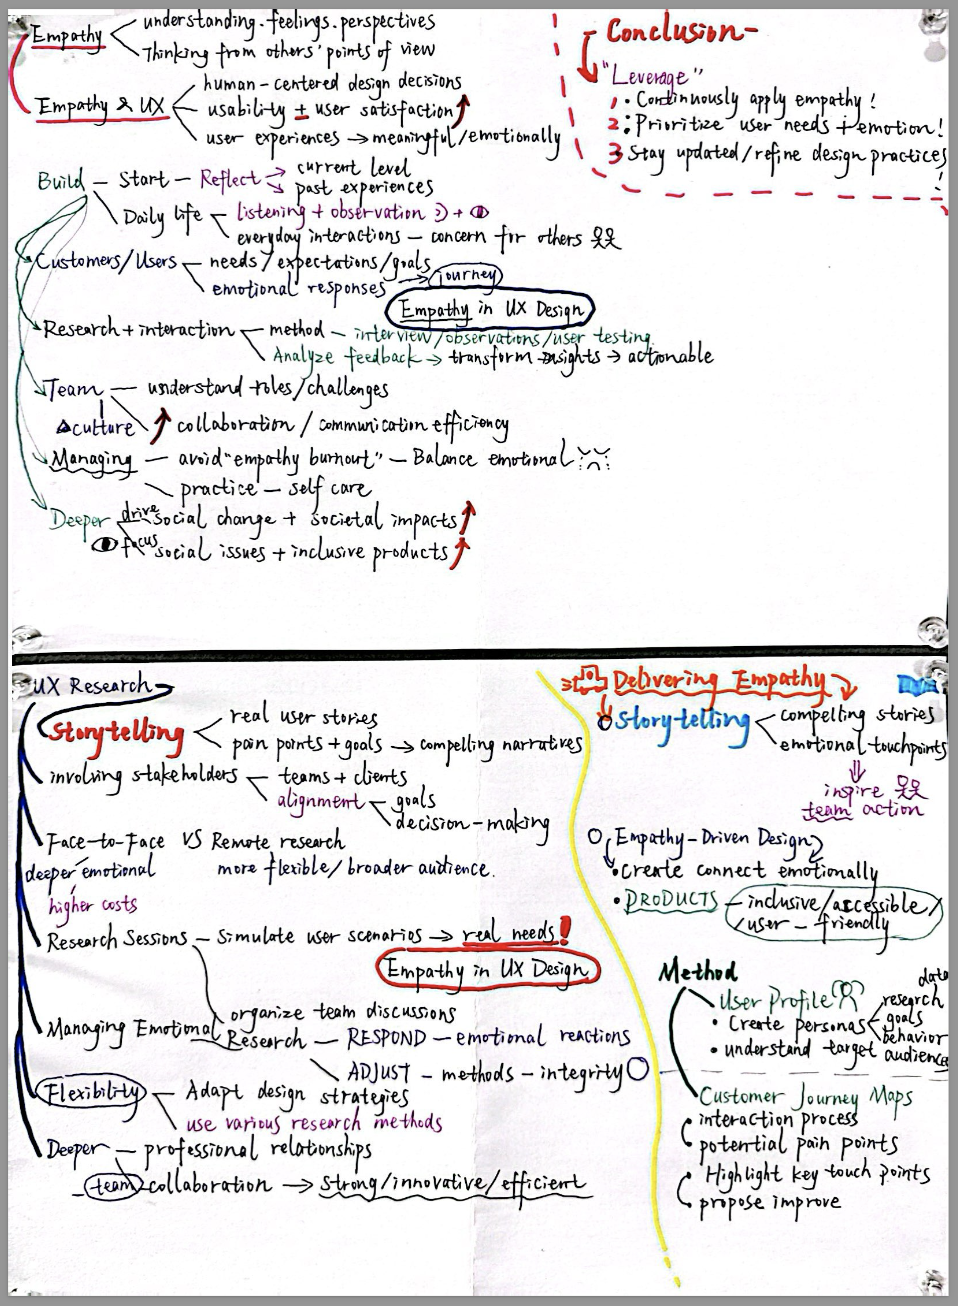 Empathy
understanding. feelings. perspectives
Thinking from others' points of view
Empathy & UX
human-centered design decisions
usability + user satisfaction
user experiences → meaningful/emotionally
Build — Start — Reflect → current level
→ past experiences
Daily life
listening + observation
everyday interactions — concern for others
Customers/Users
needs/expectations/goals
emotional responses → journey
Empathy in UX Design
Research + interaction
method — interview/observations/user testing
Analyze feedback → transform insights → actionable
Team — understand roles/challenges
culture
collaboration / communication efficiency
Managing — avoid "empathy burnout" — Balance emotional
practice — self care
Deeper
drive social change + societal impacts
focus social issues + inclusive products
Conclusion-
"Leverage"
1. Continuously apply empathy!
2. Prioritize user needs + emotion!
3 Stay updated/refine design practices!
UX Research
Storytelling
real user stories
pain points + goals → compelling narratives
involving stakeholders
teams + clients
alignment
goals
decision-making
Face-to-Face VS Remote research
deeper emotional
more flexible/broader audience.
higher costs
Research Sessions — Simulate user scenarios → real needs!
Empathy in UX Design
Managing Emotional
organize team discussions
Research — RESPOND — emotional reactions
ADJUST — methods — integrity
Flexibility
Adapt design strategies
use various research methods
Deeper — professional relationships
team collaboration → strong/innovative/efficient
Delivering Empathy
Storytelling
compelling stories
emotional touchpoints
inspire
team action
Empathy-Driven Design
• Create connect emotionally
• PRODUCTS — inclusive/accessible/
/user-friendly
Method
User Profile
• Create personas
data
research
goals
behavior
• understand target audience
Customer Journey Maps
interaction process
potential pain points
Highlight key touch points
propose improve